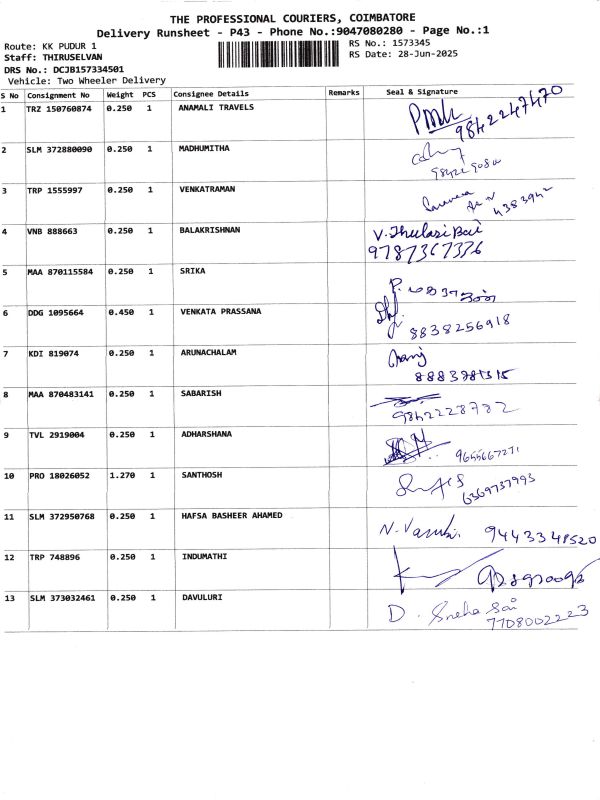 THE PROFESSIONAL COURIERS, COIMBATORE
Delivery Runsheet - P43 - Phone No.:9047080280 - Page No.:1
Route: KK PUDUR 1
RS No.: 1573345
Staff: THIRUSELVAN
RS Date: 28-Jun-2025
DRS No.: DCJB157334501
Vehicle: Two Wheeler Delivery
S No Consignment No Weight PCS Consignee Details Remarks Seal & Signature
1 TRZ 150760874 0.250 1 ANAMALI TRAVELS
9842247470
2 SLM 372880090 0.250 1 MADHUMITHA
3 TRP 1555997 0.250 1 VENKATRAMAN
4 VNB 888663 0.250 1 BALAKRISHNAN V. Thulasi Bai
9787367336
5 MAA 870115584 0.250 1 SRIKA
6 DDG 1095664 0.450 1 VENKATA PRASSANA
8838256918
7 KDI 819074 0.250 1 ARUNACHALAM
8 MAA 870483141 0.250 1 SABARISH
9842228782
9 TVL 2919004 0.250 1 ADHARSHANA
9655667271
10 PRO 18026052 1.270 1 SANTHOSH
6369737993
11 SLM 372950768 0.250 1 HAFSA BASHEER AHAMED
N. Vasuki 9443348520
12 TRP 748896 0.250 1 INDUMATHI
13 SLM 373032461 0.250 1 DAVULURI
D. Sneha Sai
7708002223